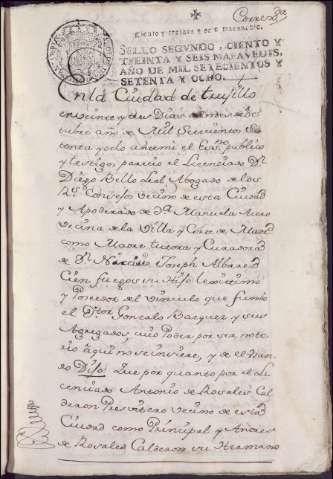 Correxda
Ciento y treinta y seis maravedis.
SELLO SEGVNDO, CIENTO Y
TREINTA Y SEIS MARAVEDIS,
AÑO DE MIL SETECIENTOS Y
SETENTA Y OCHO.
En la Ciudad de truxillo
en veinte y dos Dias del mes de
tubre año de Mil Setecientos Se
tenta y ocho antemi el Essno publico
y testigos, parecio el Licenciado Dn
Diego Bello Leal Abogado de los
Rs Consejos vecino de esta Ciudad
y Apoderado de Da Manuela
vecina de la Villa y Corte de Madrid
como Madre tutora y Curadora
de Dn Narciso Joseph
Cien fuegos su Hijo Lexitimo
y Posehedor del vinculo que fundo
el Dtor Gonzalo Bazquez y sus
Agregados, cuio Poder por ser noto
rio aqui no se insiere, y de el usan
do Dijo Que por quanto por el Li
cenciado Antonio de Rosales Cal
deron Presvitero vecino de esta
Ciudad como Prinzipal y Andres
de Rosales Calderon su Hermano